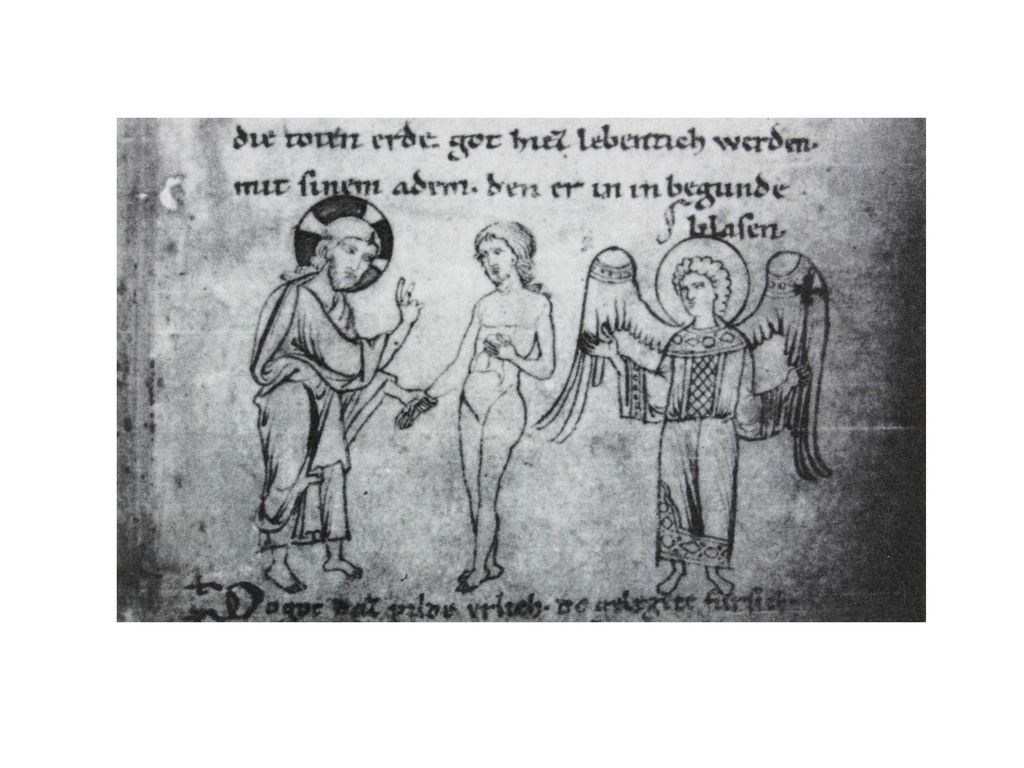 die toten erde. got hiez lebentich werden.
mit sinem adem. den er in in begunde
blasen.
Do got daz pilde erlich. do gelegete fur sich.